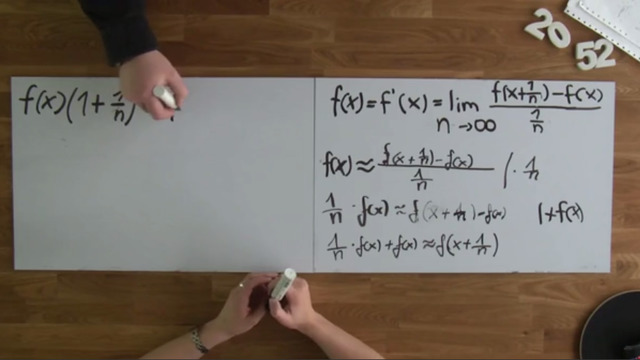 f(x)(1+1/n)
f(x)=f'(x)=lim n→∞ (f(x+1/n)-f(x))/(1/n)
f(x)≈(f(x+1/n)-f(x))/(1/n) /·1/n
1/n·f(x)≈f(x+1/n)-f(x) |+f(x)
1/n·f(x)+f(x)≈f(x+1/n)
20
52